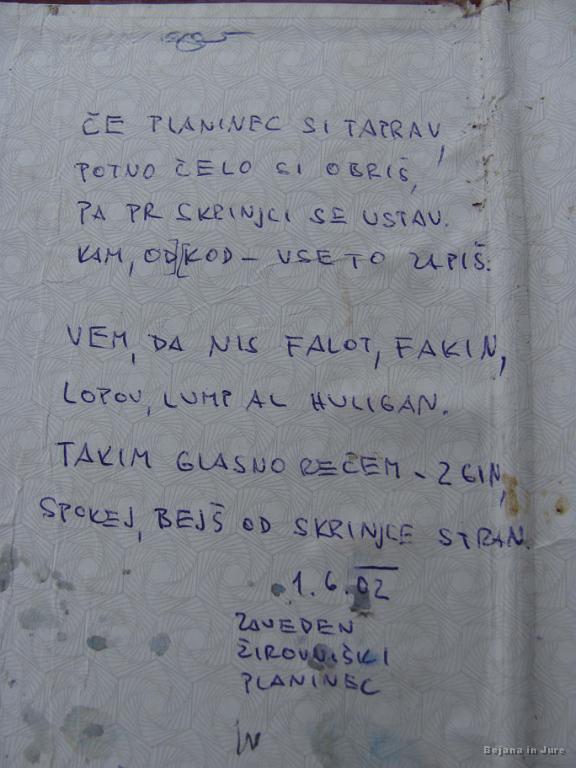 ČE PLANINEC SI TAPRAV,
POTNO ČELO SI OBRIŠ,
PA PR SKRINJCI SE USTAV.
KAM, OD KOD – VSE TO ZAPIŠ.
VEM, DA NIS FALOT, FAKIN,
LOPOV, LUMP AL HULIGAN.
TAKIM GLASNO REČEM – ZGIN,
SPOKEJ, BEJŠ OD SKRINJCE STRAN.
1.6.02
ZAVEDEN
ŽIROVNIŠKI
PLANINEC
Bojana in Jure